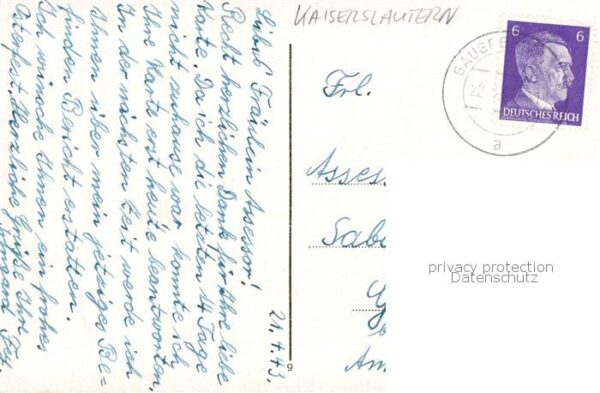 KAISERSLAUTERN
21.4.43.
Liebes Fräulein Assessor!
Recht herzlichen Dank für Ihre liebe
Karte. Da ich die letzten 14 Tage
nicht zuhause war konnte ich
Ihre Karte erst heute beantworten.
In der nächsten Zeit werde ich
Ihnen über mein jetziges Be=
finden Bericht erstatten.
Ich wünsche Ihnen ein frohes
Osterfest. Herzliche Grüße Ihre
Irmgard
Frl.
Asses
Sab
Am
6 6
DEUTSCHES REICH
a
9
privacy protection
Datenschutz